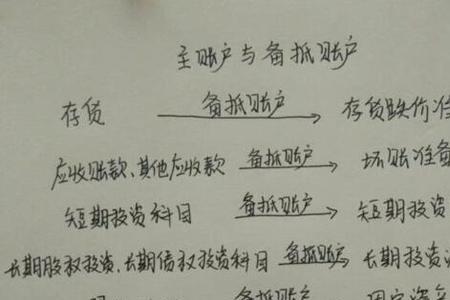 主账户与备抵账户
存货 备抵账户 存货跌价准
应收账款、其他应收款 备抵账户 坏账准备
短期投资科目 备抵账户 短期投资
长期股权投资、长期债权投资科目 备抵账户 长期投资
备抵账户 固定资产